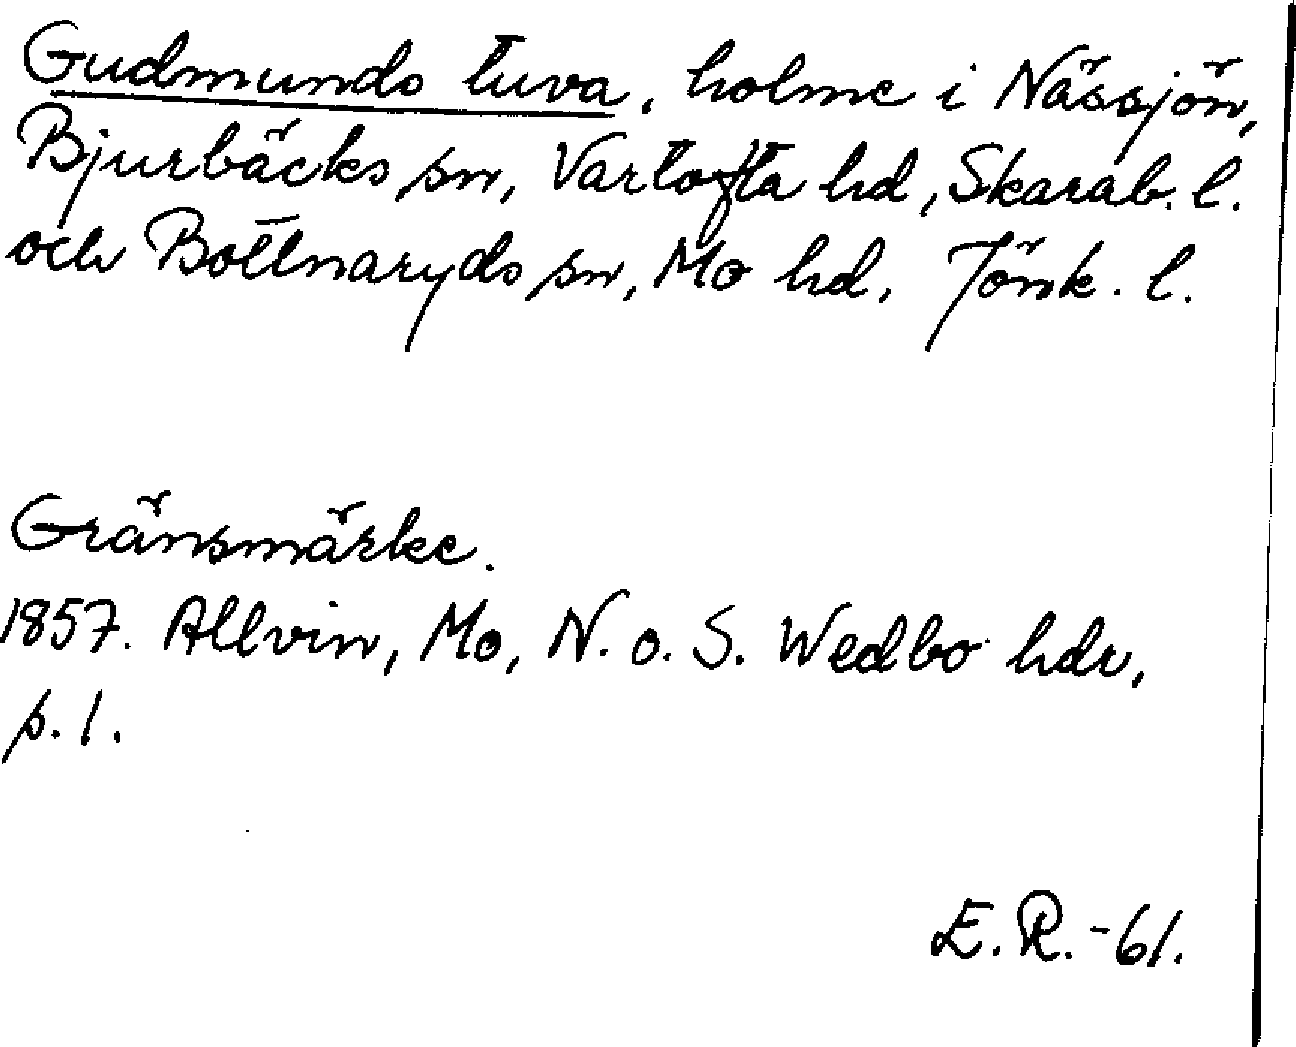 Gudmunds tuva, holme i Nässjön,
Bjurbäcks sn, Vartofta hd, Skarab. l.
och Bottnaryds sn, Mo hd, Jönk. l.
Gränsmärke.
1857. Allvin, Mo, N. o. S. Wedbo hdr,
s. 1.
E. R. -61.